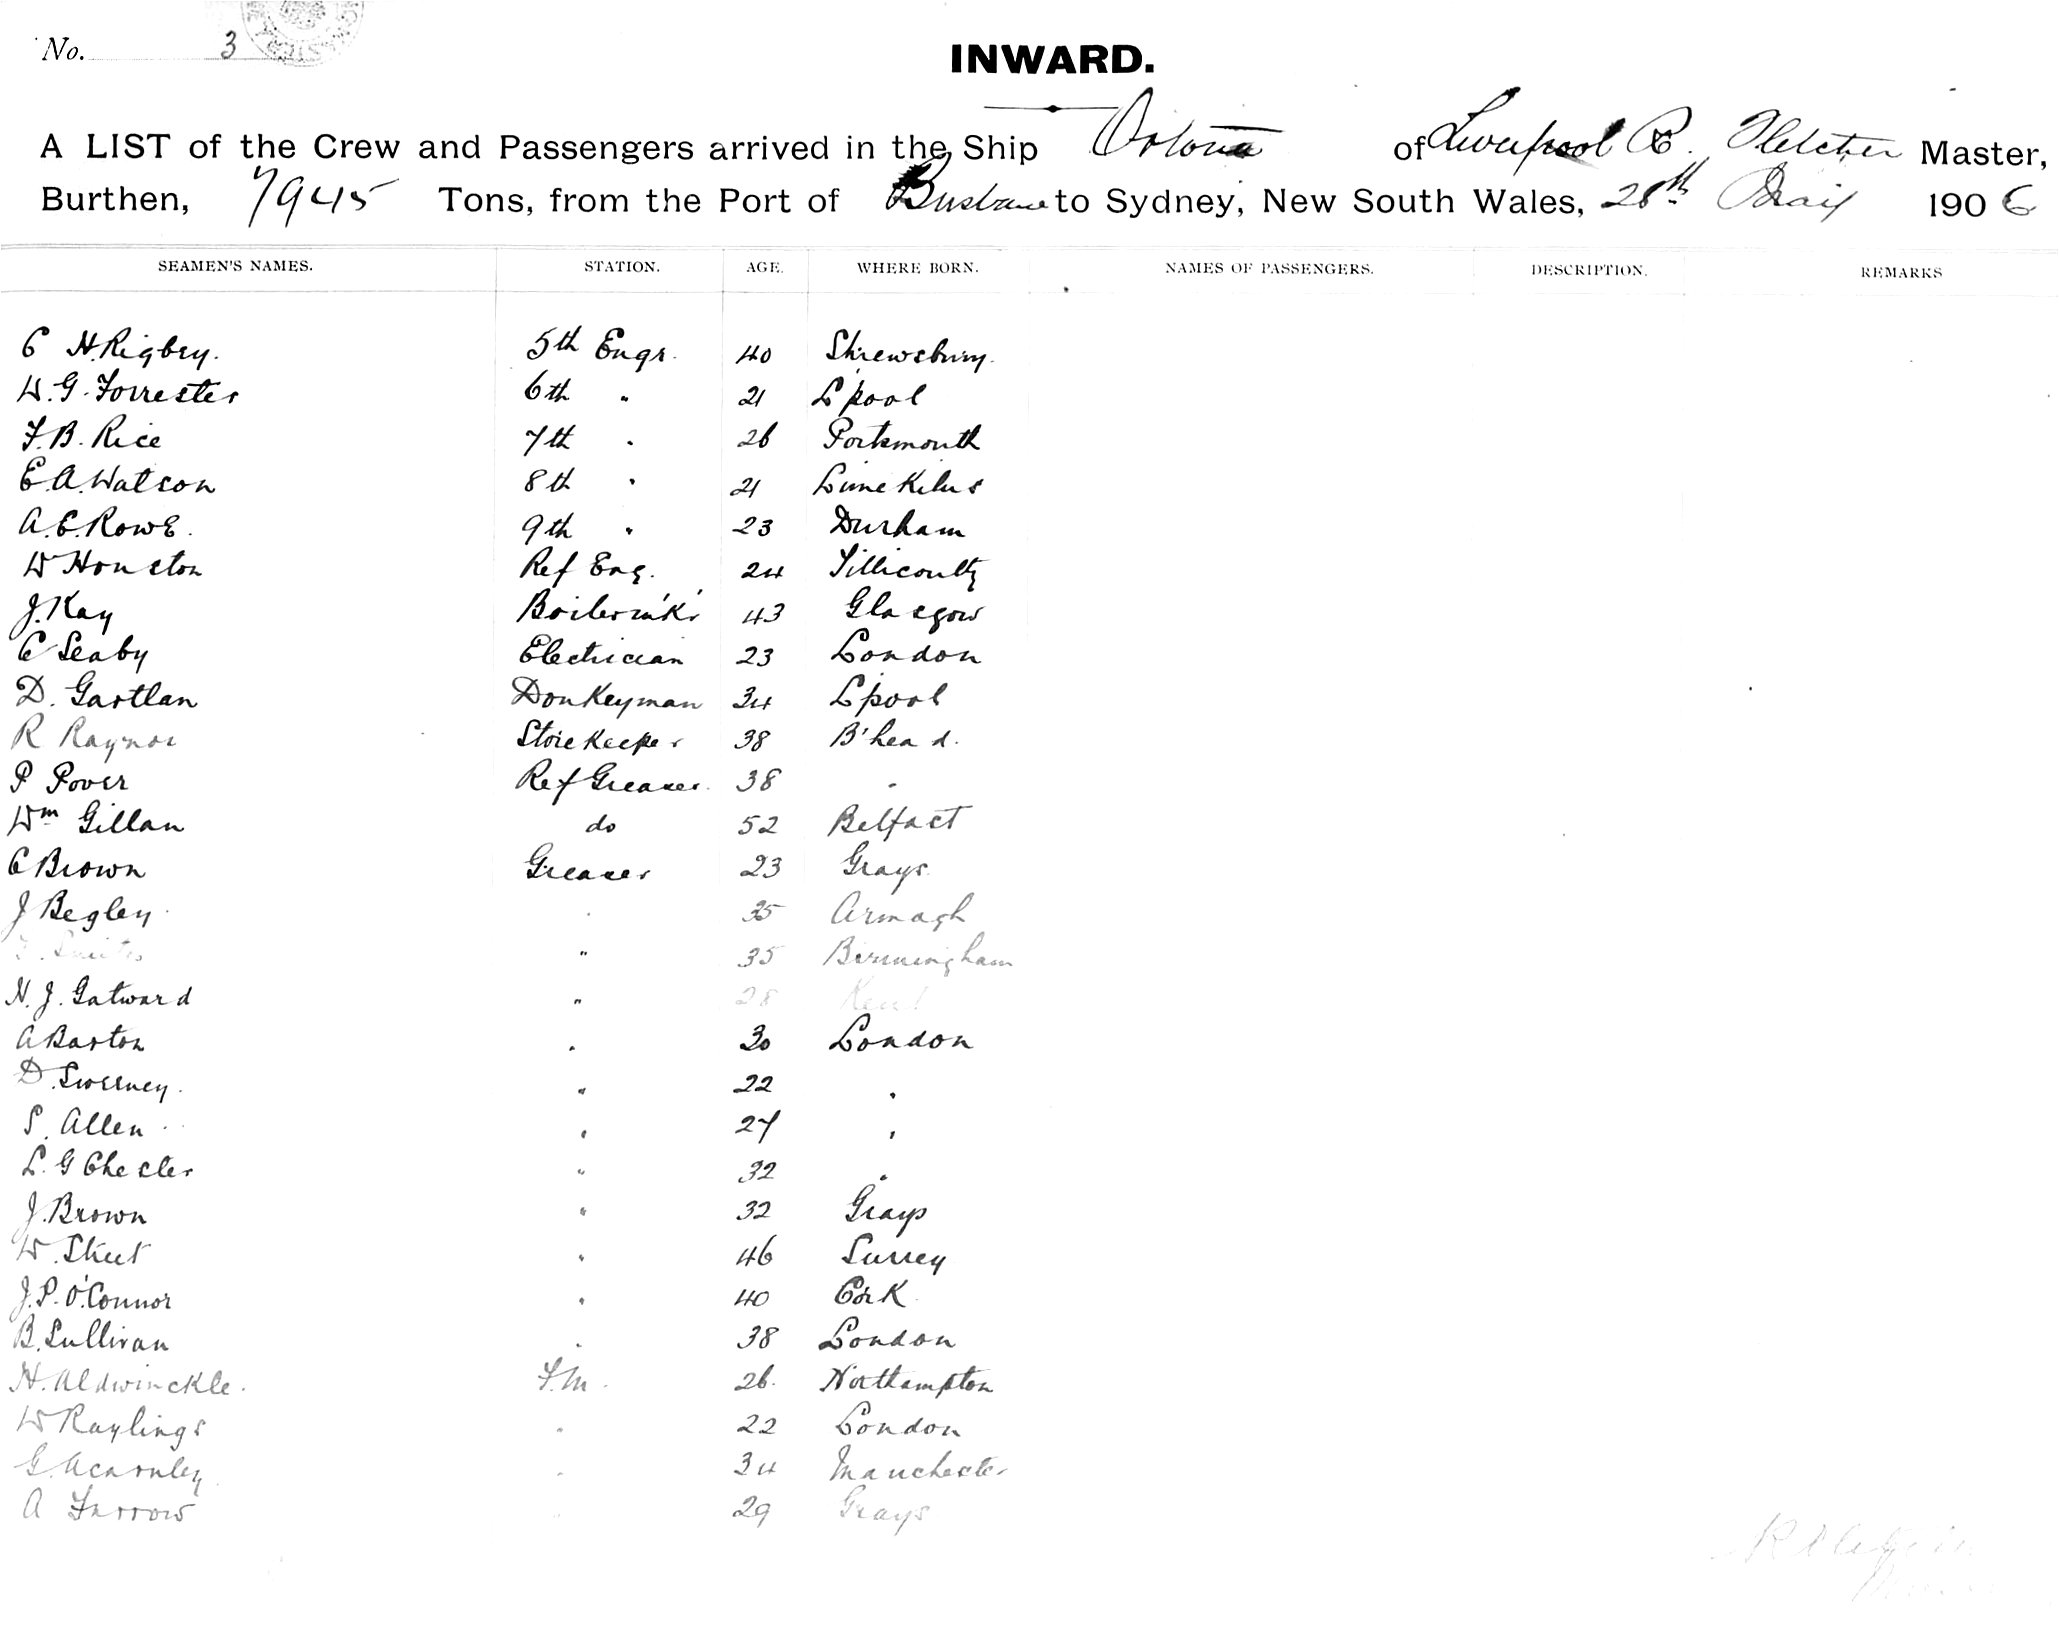 No. 3
INWARD.
A LIST of the Crew and Passengers arrived in the Ship Orotava of Liverpool R. Fletcher Master,
Burthen, 7945 Tons, from the Port of Brisbane to Sydney, New South Wales, 28th May 1906
SEAMEN'S NAMES. STATION. AGE. WHERE BORN. NAMES OF PASSENGERS. DESCRIPTION. REMARKS
C H. Rigbey. 5th Engr. 40 Shrewsbury.
W. G. Forrester 6th " 21 L'pool
F. B. Rice 7th " 26 Portsmouth
E. A. Watson 8th " 21 Lime Kilns
A. E. Rowe. 9th " 23 Durham
W Houston Ref Eng. 24 Tillicoulty
J. Kay Boilerm'k'r 43 Glasgow
C Seaby Electrician 23 London
D. Gartlan Donkeyman 34 L'pool
R Raynor Storekeeper 38 B'head.
P Pover Ref Greaser. 38 "
Wm Gillan do 52 Belfast
C Brown Greaser 23 Grays
J Begley " 35 Armagh
" 35 Birmingham
H. J. Gatward " 28 Kent
A Barton " 30 London
D. Sweeney. " 22 "
S. Allen " 27 "
L. G Chester " 32 "
J. Brown " 32 Grays
W. Street " 46 Surrey
J. P. O'Connor " 40 Cork
B. Sullivan " 38 London
H. Aldwinckle. F.M. 26. Northampton
W Raylings " 22 London
G. Acarnley " 34 Manchester
A Farrow " 29 Grays